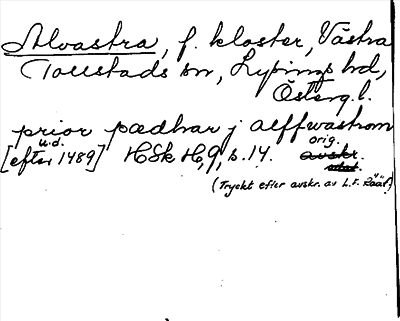 Alvastra, f. kloster, Västra
Tollstads sn, Lysings hd,
Österg.l.
prior pædhar j alffwastrom
u.d. orig.
[efter 1489] HSk H,9, s. 14. avskr.
(Tryckt efter avskr. av L. F. Rääf)